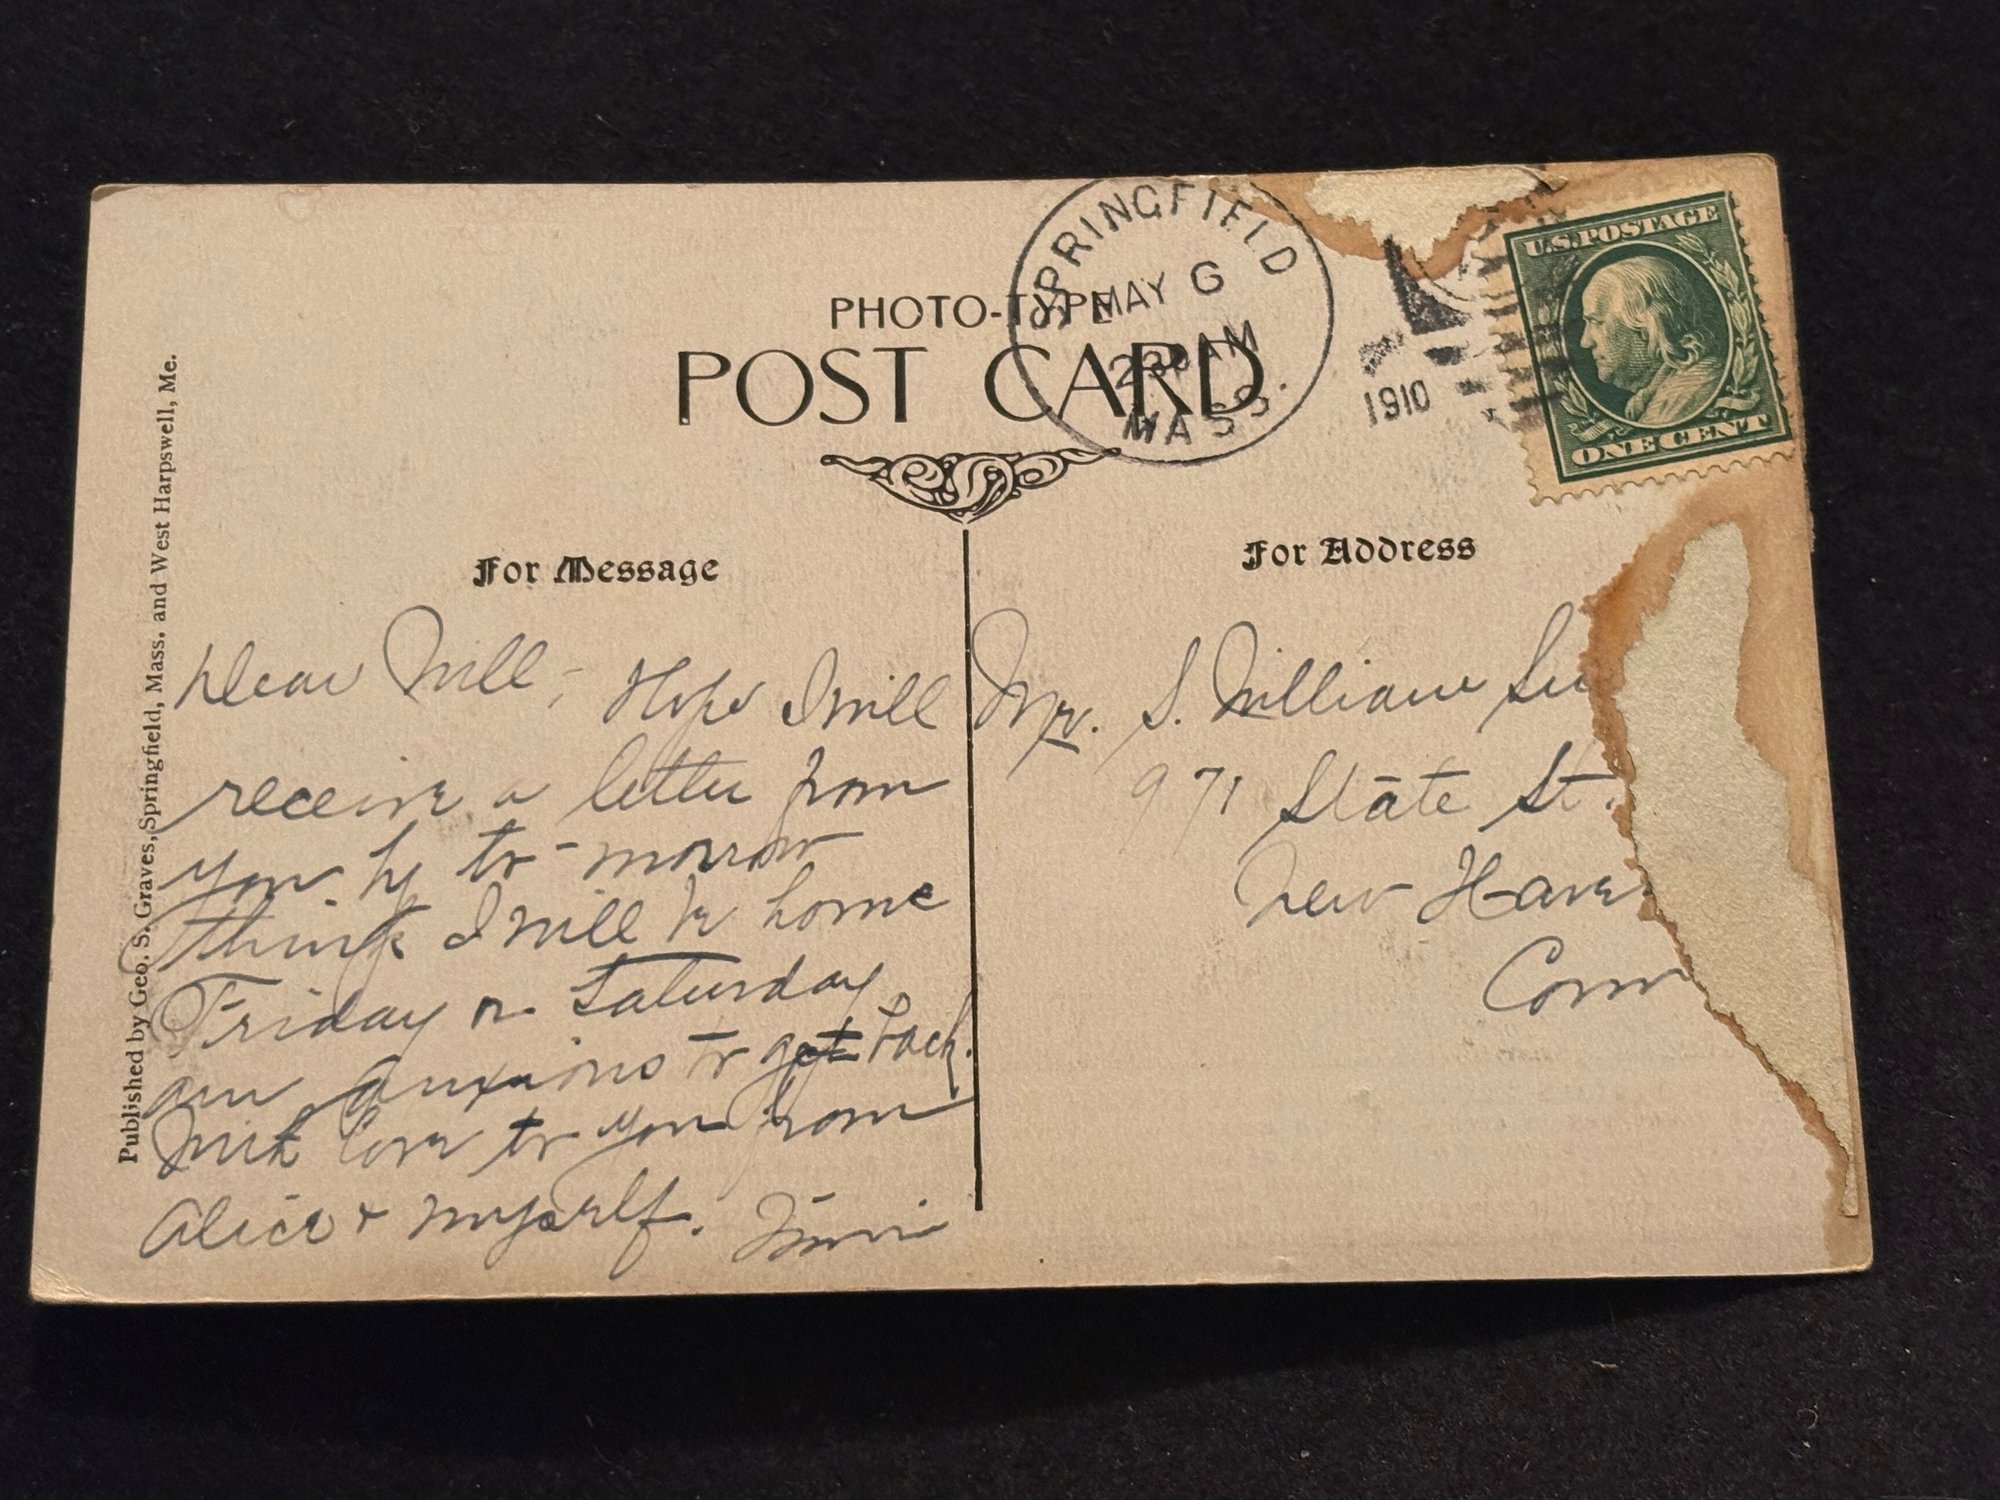 SPRINGFIELD
MAY 6
230 AM
MASS.
1910
U.S. POSTAGE
ONE CENT
PHOTO-TYPE
POST CARD
For Message
For Address
Published by Geo. S. Graves, Springfield, Mass. and West Harpswell, Me.
Dear Will, - Hope I will
receive a letter from
you by to-morrow
think I will be home
Friday or Saturday
am anxious to get back.
With love to you from
Alice & myself.
Mr. S. William
971 State St.
New Haven
Conn